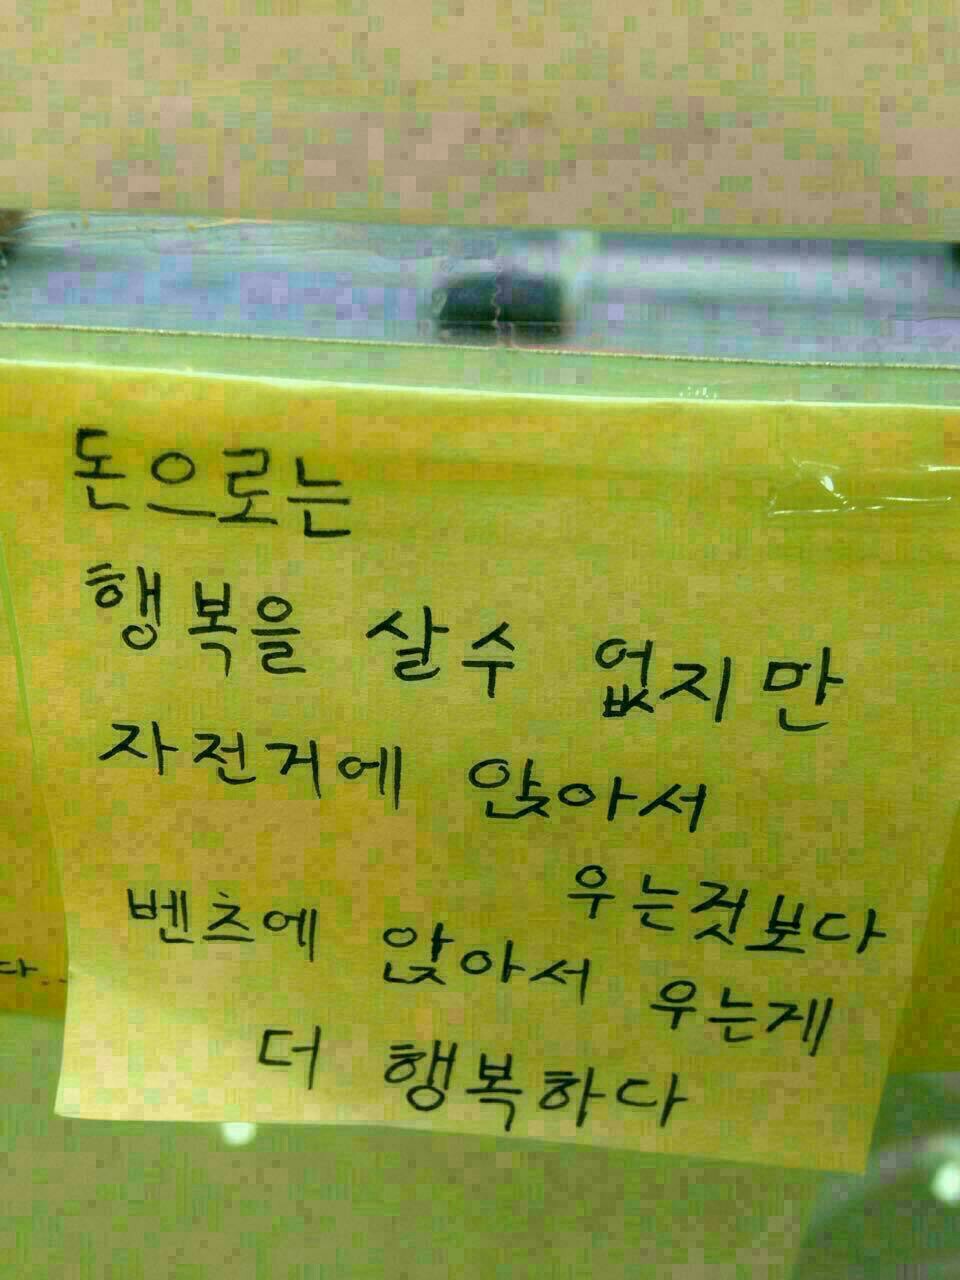 돈으로는
행복을 살수 없지만
자전거에 앉아서
우는것보다
벤츠에 앉아서 우는게
더 행복하다
다..